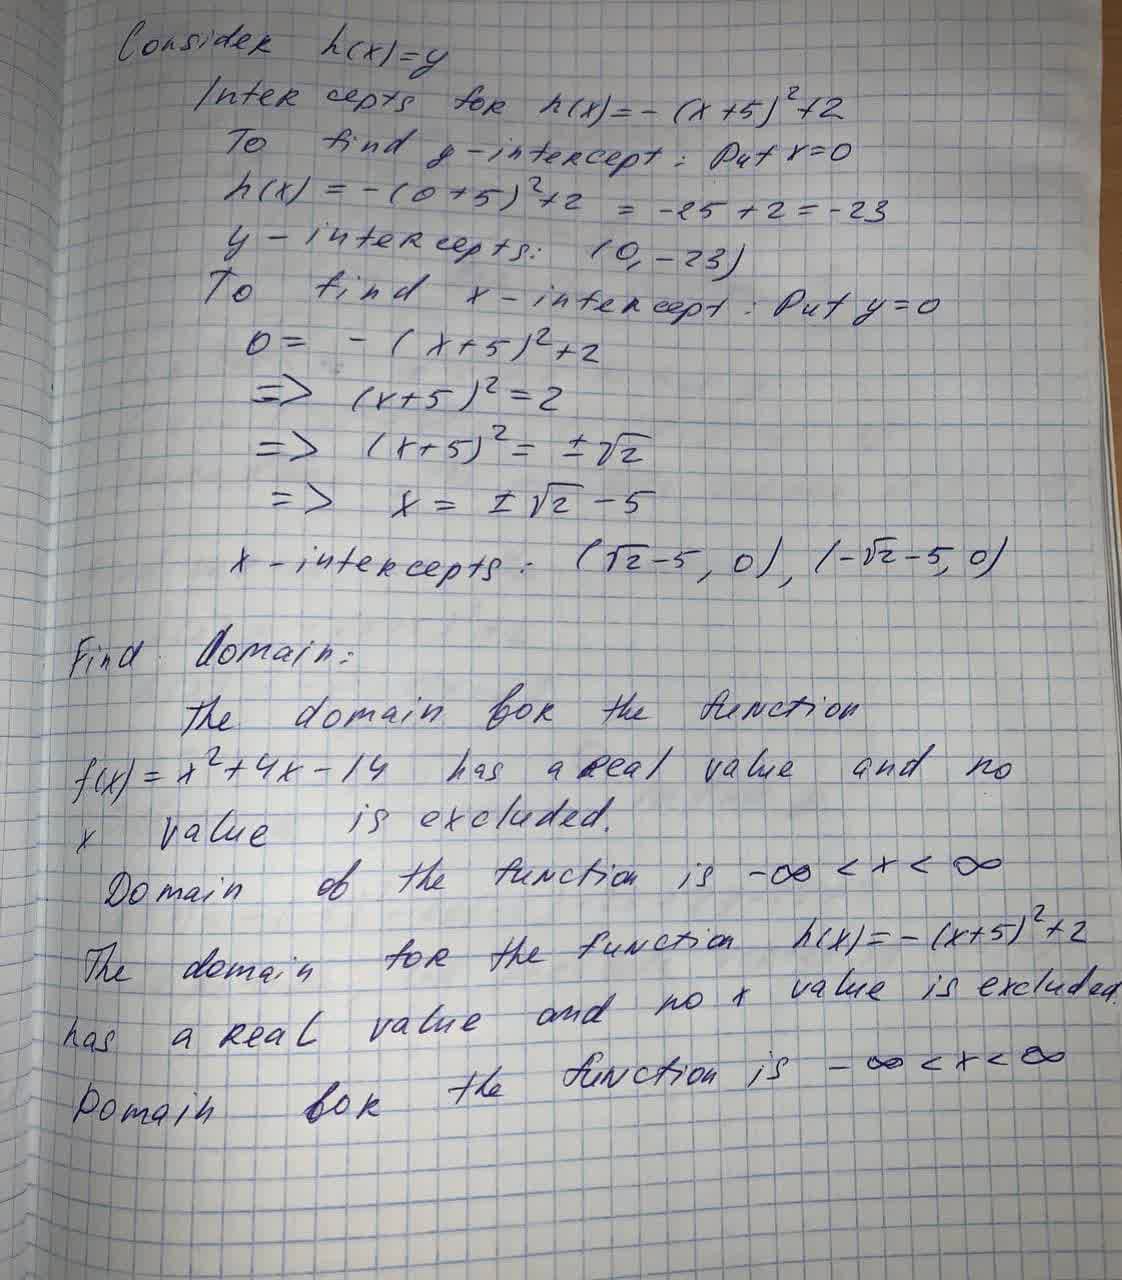 Consider h(x)=y
Intercepts for h(x)= - (x+5)²+2
To find y-intercept: Put x=0
h(x) = -(0+5)²+2 = -25+2=-23
y-intercepts: (0,-23)
To find x-intercept: Put y=0
0= - (x+5)²+2
=> (x+5)²=2
=> (x+5)²= ±√2
=> x= ±√2 -5
x-intercepts: (√2-5, 0), (-√2-5, 0)
Find Domain:
The domain for the function
f(x)= x²+4x-14 has a real value and no
x value is excluded.
Domain of the function is -∞ < x < ∞
The domain for the function h(x)= -(x+5)²+2
has a real value and no x value is excluded.
Domain for the function is -∞ < x < ∞